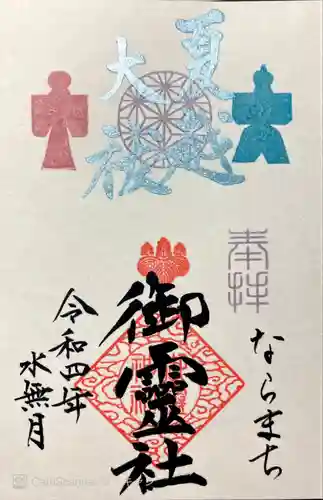 夏越
大祓
奉拝
ならまち
御靈社
令和四年
水無月